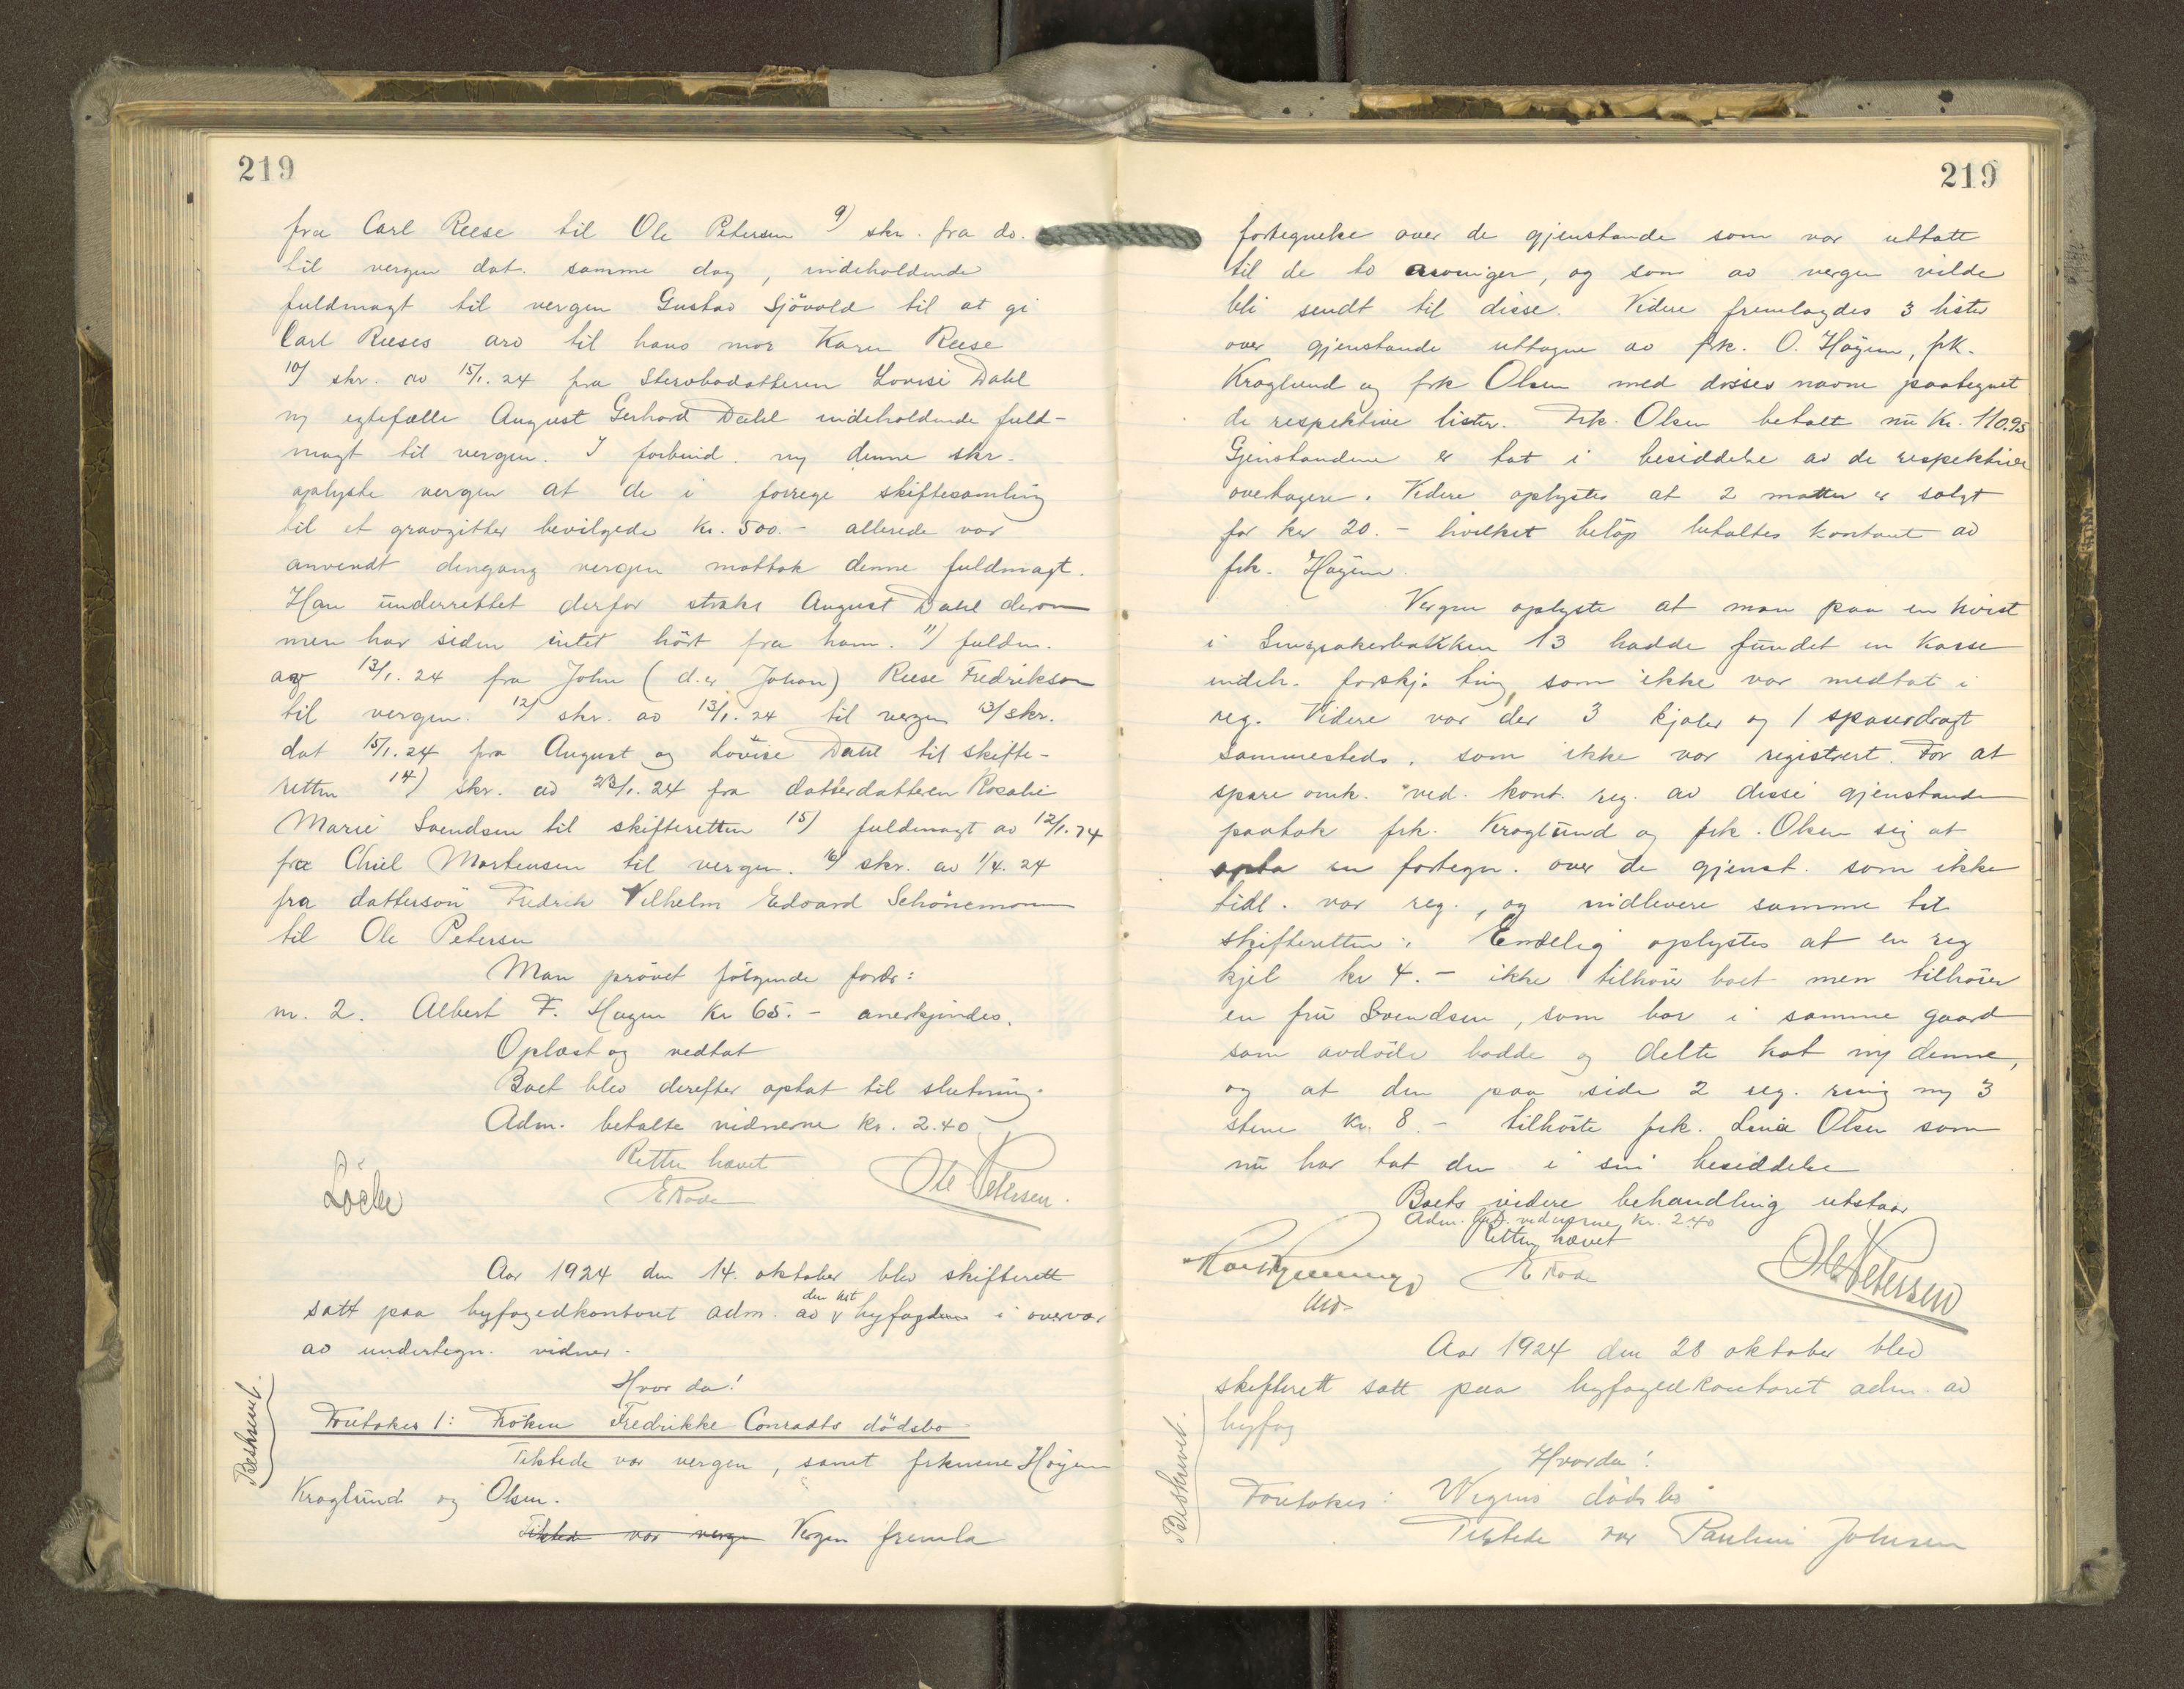 219
fra Carl Reese til Ole Petersen 9) skr. fra do.
til vergen dat. samme dag, indeholdende
fuldmagt til vergen Gustav Sjövold til at gi
Carl Reeses arv til hans mor Karen Reese
10) skr. av 15/1. 24 fra Stervbodatteren Lovise Dahl
m/ egtefælle August Gerhard Dahl indeholdende fuld-
magt til vergen. I forbind. m/ denne skr.
oplyste vergen at de i forrege skiftesamling
til et gravgitter bevilgede kr. 500.- allerede var
anvendt dengang vergen mottok denne fuldmagt.
Han underrettet derfor straks August Dahl derom
men har siden intet hört fra ham. 11) fuldm.
av 13/1. 24 fra John (d.e. Johan) Reese Fredrikson
til vergen. 12) skr. av 13/1. 24 til vergen 13) skr.
dat 15/1. 24 fra August og Lovise Dahl til skifte-
retten 14) skr. av 23/1. 24 fra datterdatteren Rosalie
Marie Svendsen til skifteretten 15) fuldmagt av 12/1. 24
fra Chiel Mortensen til vergen. 16) skr. av 1/4. 24
fra dattersön Fredrik Vilhelm Edvard Schönemann
til Ole Petersen
Man prövet fölgende fordr:
nr. 2. Albert F. Hagen kr 65.- anerkjendes.
Oplæst og vedtat
Boet blev derefter optat til slutning.
Adm. betalte vidnerne kr. 2.40
Retten hævet
E Rode Ole Petersen.
Aar 1924 den 14. oktober blev skifterett
satt paa byfogedkontoret adm. av den kst byfogden i overvær
av undertegn. vidner.
Hvor da!
Beskrevet.
Foretokes 1: Fröken Fredrikke Conradts dödsbo
Tilstede var vergen, samt frknene Höyem
Kraglund og Olsen.
Tilstede var verge Vergen fremla
219
fortegnelse over de gjenstande som var uttatt
til de to arvinger, og som av vergen vilde
bli sendt til disse. Videre fremlagdes 3 lister
over gjenstande uttagne av frk. O. Höyem, frk.
Kraglund og frk Olsen med disses navne paategnet
de respektive lister. Frk. Olsen betalt nu kr. 110.95
Gjenstandene er tat i besiddelse av de respektive
overtagere. Videre oplystes at 2 matter er solgt
for kr 20.- hvilket belöp betaltes kontant av
frk. Höyem.
Vergen oplyste at man paa en kvist
i Smørsbakken 13 hadde fundet en kasse
indeh. forskj. ting, som ikke var medtat i
reg. Videre var der 3 kjoler og 1 spaserdragt
sammesteds, som ikke var registrert. For at
spare omk. ved kont. reg. av disse gjenstande
paatok frk. Kraglund og frk. Olsen sig at
opta en fortegn. over de gjenst. som ikke
tidl. var reg., og indlevere samme til
skifteretten. Endelig oplystes at en reg
kjel kr 4.- ikke tilhörer boet men tilhörer
en fru Svendsen, som bor i samme gaard
som avdöde hadde og delte kot m/ denne,
og at den paa side 2 reg. ring m/ 3
stene kr. 8.- tilhörte frk. Lina Olsen som
nu har tat den i sin besiddelse
Boets videre behandling utstaar
Adm. bet. vidnerne kr. 2.40
Retten hævet
E Rode Ole Petersen
Aar 1924 den 28 oktober blev
skifterett satt paa byfogedkontoret adm. av
byfog
Hvorda!
Beskrevet.
Foretokes: Wegins dödsbo
Tilstede var Pauline Johnsen